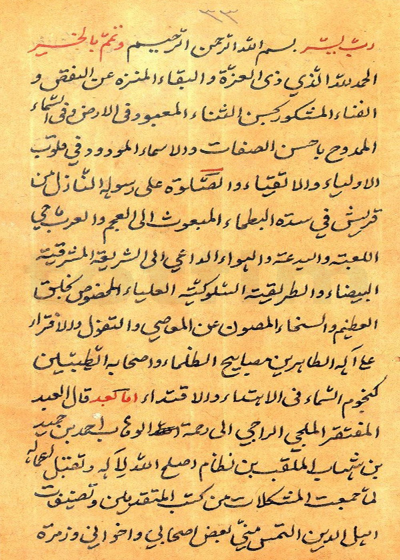 ٣٣
رب يسر بسم الله الرحمن الرحيم وتمم بالخير
الحمد لله الذي ذي العزة والبقاء المنزه عن النقص و
الفناء المشكور بحسن الثناء المعبود في الارض وفي السماء
الممدوح باحسن الصفات والاسماء المودود في قلوب
الاولياء والاتقياء والصلوة على رسوله النازل من
قريش في سدة البطحاء المبعوث الى العجم والعرب ماحي
اللعبة والبدعة والهواء الداعي الى الشريعة المشرقية
البيضاء والطريقية السلوكية العلياء المخصوص بخلق
العظيم والسخاء المصون عن المعاصي والتقول والافتراء
على آله الطاهرين مصابيح الظلماء واصحابه الطيبين
كنجوم السماء في الاهتداء والاقتداء اما بعد قال العبد
المفتقر الملتجي الراجي الى رحمة الوهاب احمد بن
بن شهاب الملقب بن نظام اصلح الله له وتقبل اعماله
لما جمعت المشكلات من كتب المتقدمين وتصنيفات
اهل الدين التمس مني بعض اصحابي واخواني وزمرة